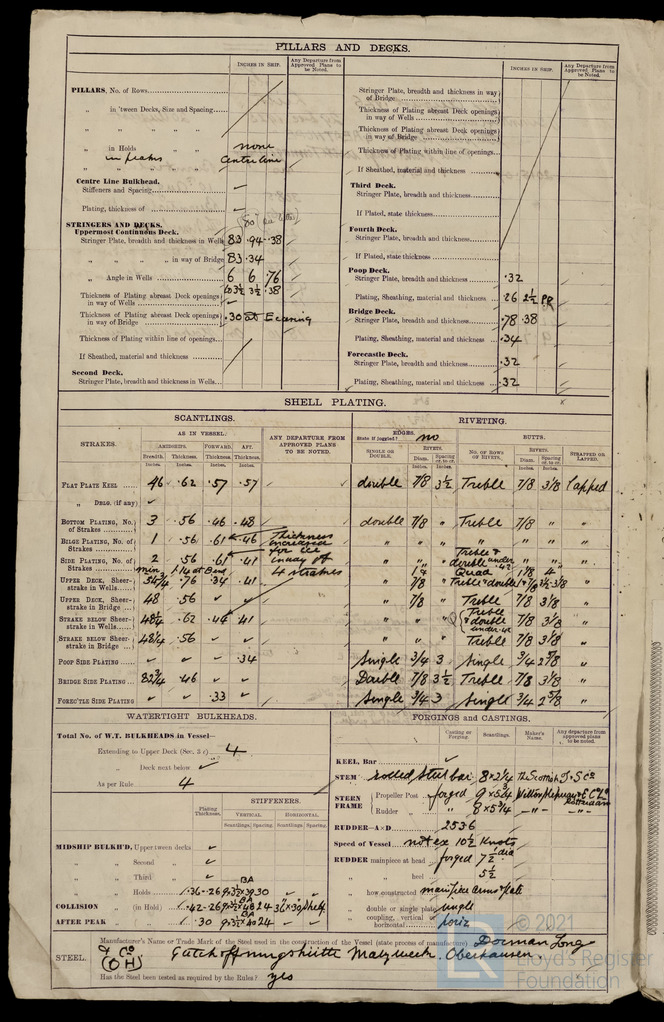 PILLARS AND DECKS.
INCHES IN SHIP.
Any Departure from Approved Plans to be Noted.
PILLARS, No. of Rows
„ in 'tween Decks, Size and Spacing
„ „ „ „
„ in Holds „ none
in peaks Centre line
Centre Line Bulkhead.
Stiffeners and Spacing
Plating, thickness of
STRINGERS AND DECKS.
Uppermost Continuous Deck.
Stringer Plate, breadth and thickness in Wells 83 .94 .38
„ „ „ in way of Bridge 83 .34
„ Angle in Wells 6 6 .76
Thickness of Plating abreast Deck openings in way of Wells 3½ 3½ .38
Thickness of Plating abreast Deck openings in way of Bridge .30 at E casing
Thickness of Plating within line of openings
If Sheathed, material and thickness
Second Deck.
Stringer Plate, breadth and thickness in Wells
INCHES IN SHIP.
Any Departure from Approved Plans to be Noted.
Stringer Plate, breadth and thickness in way of Bridge
Thickness of Plating abreast Deck openings in way of Wells
Thickness of Plating abreast Deck openings in way of Bridge
Thickness of Plating within line of openings
If Sheathed, material and thickness
Third Deck.
Stringer Plate, breadth and thickness
If Plated, state thickness
Fourth Deck.
Stringer Plate, breadth and thickness
If Plated, state thickness
Poop Deck.
Stringer Plate, breadth and thickness .32
Plating, Sheathing, material and thickness .26 2½ PP
Bridge Deck.
Stringer Plate, breadth and thickness .78 .38
Plating, Sheathing, material and thickness .34
Forecastle Deck.
Stringer Plate, breadth and thickness .32
Plating, Sheathing, material and thickness .32
SHELL PLATING.
SCANTLINGS.
RIVETING.
STRAKES.
AS IN VESSEL.
AMIDSHIPS. FORWARD. AFT.
Breadth. Thickness. Thickness. Thickness.
Inches. Inches. Inches. Inches.
ANY DEPARTURE FROM APPROVED PLANS TO BE NOTED.
EDGES.
State if joggled? no
SINGLE OR DOUBLE.
RIVETS.
Diam. Spacing cr. to cr.
Inches. Inches.
BUTTS.
NO. OF ROWS OF RIVETS.
RIVETS.
Diam. Spacing cr. to cr.
Inches. Inches.
STRAPPED OR LAPPED.
FLAT PLATE KEEL 46 .62 .57 .57 double 7/8 3½ Treble 7/8 3⅛ lapped
„ DBLG. (if any)
BOTTOM PLATING, No. of Strakes 3 .56 .46 .48 double 7/8 „ Treble 7/8 „ „
BILGE PLATING, No. of Strakes 1 .56 .61 .46 Thickness increased for ice in way of 4 strakes „ „ „ „ „ „ „
SIDE PLATING, No. of Strakes 2 .56 .61 .41 „ „ „ Treble & double under „ „ „
UPPER DECK, Sheerstrake in Wells 54¼ .76 .34 .41 „ 7/8 „ Treble & double
UPPER DECK, Sheerstrake in Bridge 48 .56 „ 7/8 „ Treble 7/8 3⅛ „
STRAKE BELOW Sheerstrake in Wells 48¼ .62 .44 .41 „ „ „ Treble & double 7/8 3⅛ „
STRAKE BELOW Sheerstrake in Bridge 48¼ .56 „ „ „ Treble 7/8 3⅛ „
POOP SIDE PLATING .34 Single 3/4 3 Single 3/4 2⅝ „
BRIDGE SIDE PLATING 82¾ .46 Double 7/8 3½ Treble 7/8 3⅛ „
FOREC'TLE SIDE PLATING .33 Single 3/4 3 Single 3/4 2⅝ „
WATERTIGHT BULKHEADS.
Total No. of W.T. BULKHEADS in Vessel—
Extending to Upper Deck (Sec. 3 c) 4
„ Deck next below
As per Rule 4
Plating Thickness.
STIFFENERS.
VERTICAL HORIZONTAL
Scantlings. Spacing. Scantlings. Spacing.
MIDSHIP BULKH'D, Upper tween decks
„ „ Second „
„ „ Third „
BA
„ „ Holds .36-.26 30
BA
COLLISION „ (in Hold) .42-.26 24
BA
AFTER PEAK „ .30 24
FORGINGS and CASTINGS.
Casting or Forging. Scantlings. Maker's Name. Any departure from approved plans to be noted.
KEEL, Bar
STEM rolled steel bar 8×2¼ The Scottish
STERN FRAME
Propeller Post forged 9×5¾ Rotterdam
Rudder „ „ 8×5¾
RUDDER—A×D 2536
Speed of Vessel not ex 10½ Knots
RUDDER mainpiece at head forged 7½ dia
„ „ heel 5½
„ how constructed mainpiece arms & plate
„ double or single plate single
„ coupling, vertical or horizontal horiz
STEEL.
Manufacturer's Name or Trade Mark of the Steel used in the construction of the Vessel (state process of manufacture) Dorman Long
& Co (OH) Gutehoffnungshütte Oberhausen.
Has the Steel been tested as required by the Rules? yes
© 2021
Lloyd's Register
Foundation